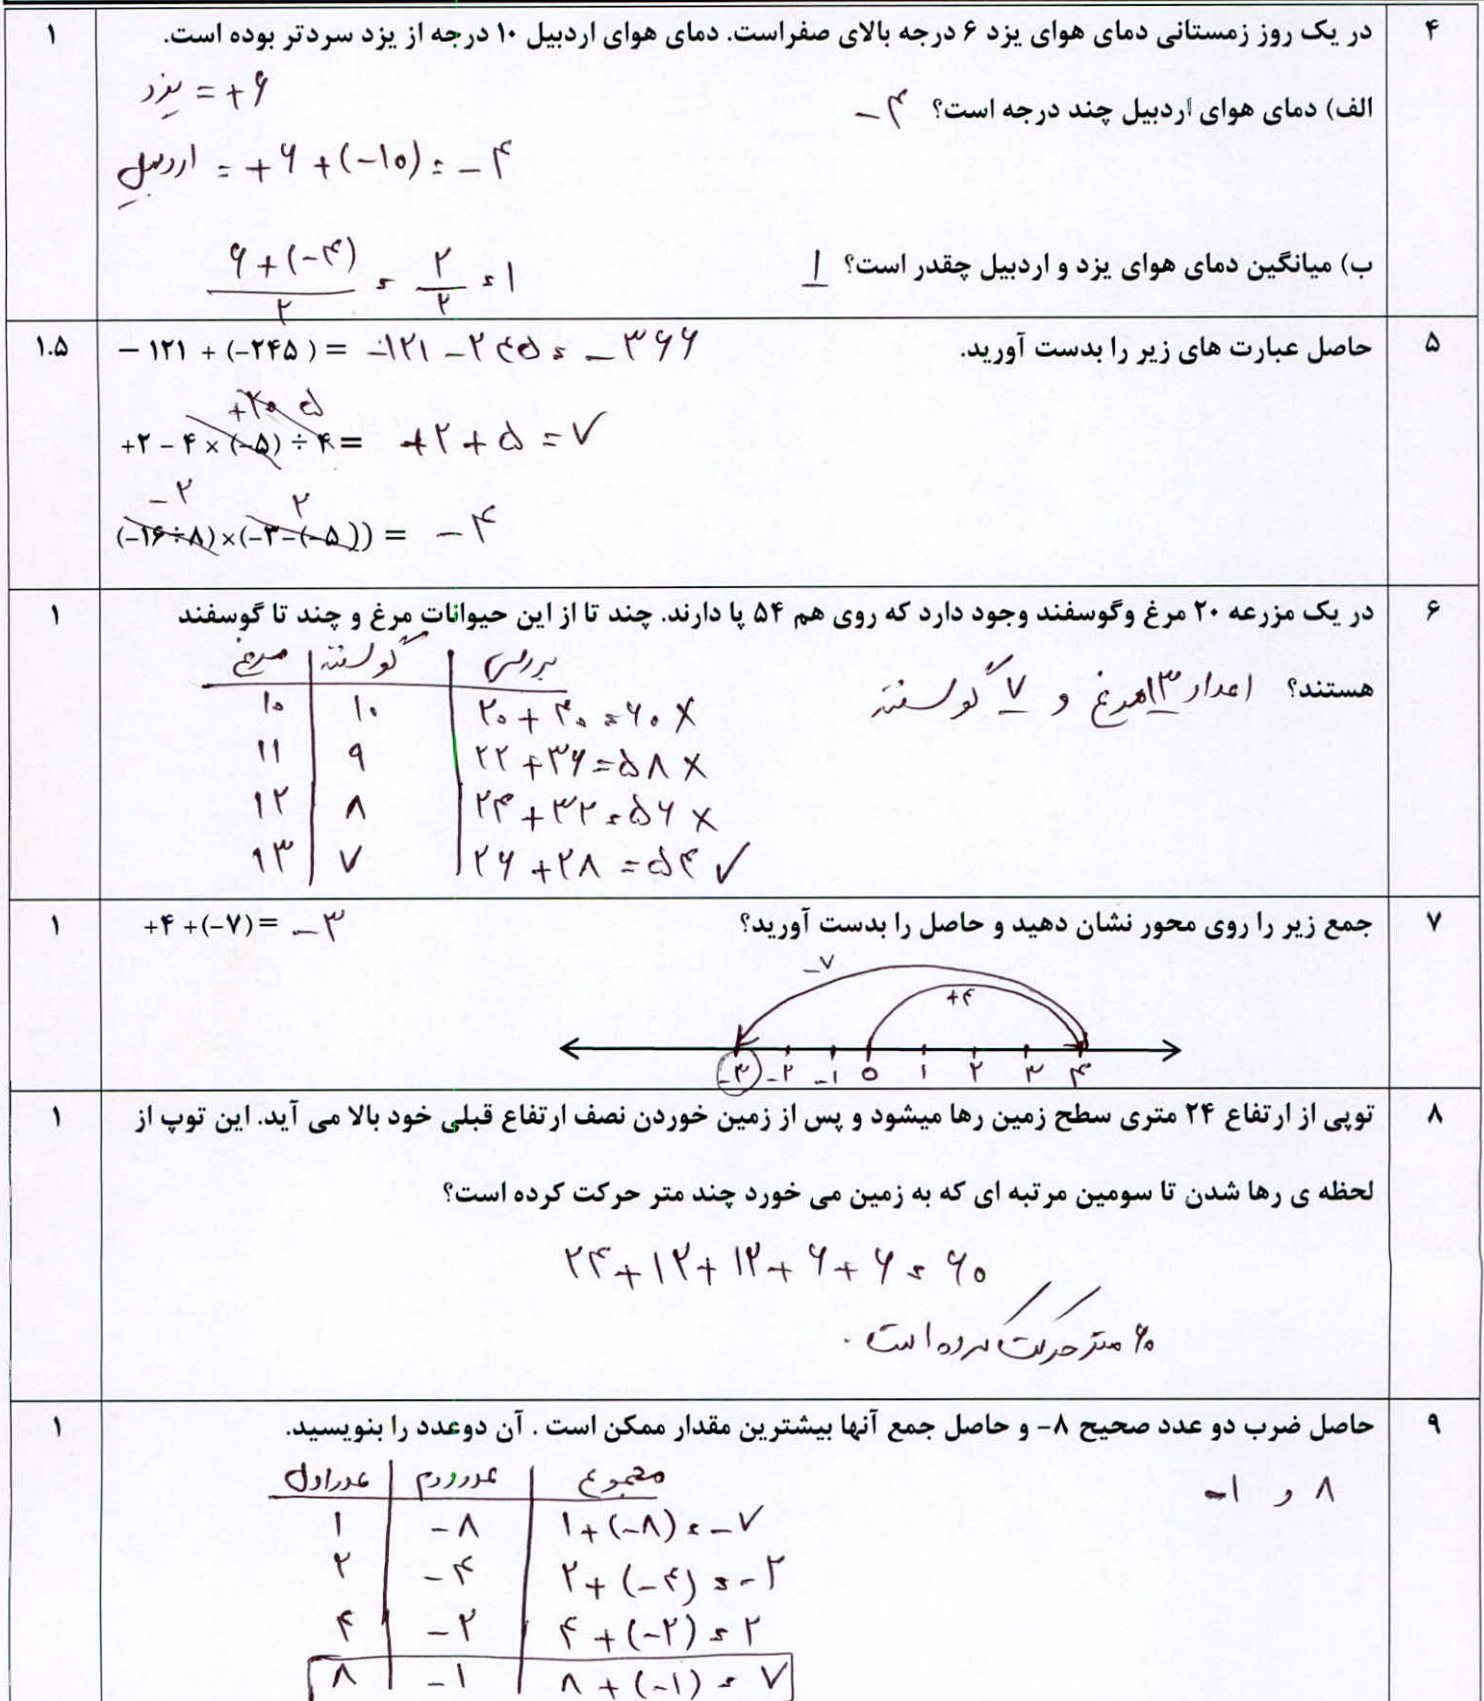 ۴ در یک روز زمستانی دمای هوای یزد ۶ درجه بالای صفراست. دمای هوای اردبیل ۱۰ درجه از یزد سردتر بوده است. ۱
یزد = +۶
الف) دمای هوای اردبیل چند درجه است؟ -۴
اردبیل = +۶ + (-۱۰) = -۴
ب) میانگین دمای هوای یزد و اردبیل چقدر است؟ ۱
۶ + (-۴) / ۲ = ۲ / ۲ = ۱
۵ حاصل عبارت های زیر را بدست آورید. ۱.۵
- ۱۲۱ + (-۲۴۵) = -۱۲۱ - ۲۴۵ = -۳۶۶
+۲۰ ۵
+۲ - ۴ × (-۵) ÷ ۴ = +۲ + ۵ = ۷
-۲ ۲
(-۱۶÷۸)×(-۳-(-۵)) = -۴
۶ در یک مزرعه ۲۰ مرغ وگوسفند وجود دارد که روی هم ۵۴ پا دارند. چند تا از این حیوانات مرغ و چند تا گوسفند ۱
هستند؟ ۱۳ مرغ و ۷ گوسفند
مرغ | گوسفند | بررسی
۱۰ | ۱۰ | ۲۰ + ۴۰ = ۶۰ ×
۱۱ | ۹ | ۲۲ + ۳۶ = ۵۸ ×
۱۲ | ۸ | ۲۴ + ۳۲ = ۵۶ ×
۱۳ | ۷ | ۲۶ + ۲۸ = ۵۴ ✓
۷ جمع زیر را روی محور نشان دهید و حاصل را بدست آورید؟ ۱
+۴ +(-۷) = -۳
-۷
+۴
-۳ -۲ -۱ ۰ ۱ ۲ ۳ ۴
۸ توپی از ارتفاع ۲۴ متری سطح زمین رها میشود و پس از زمین خوردن نصف ارتفاع قبلی خود بالا می آید. این توپ از ۱
لحظه ی رها شدن تا سومین مرتبه ای که به زمین می خورد چند متر حرکت کرده است؟
۲۴ + ۱۲ + ۱۲ + ۶ + ۶ = ۶۰
۶۰ متر حرکت کرده است.
۹ حاصل ضرب دو عدد صحیح ۸- و حاصل جمع آنها بیشترین مقدار ممکن است . آن دوعدد را بنویسید. ۱
۸ و -۱
عدد اول | عدد دوم | مجموع
۱ | -۸ | ۱ + (-۸) = -۷
۲ | -۴ | ۲ + (-۴) = -۲
۴ | -۲ | ۴ + (-۲) = ۲
۸ | -۱ | ۸ + (-۱) = ۷